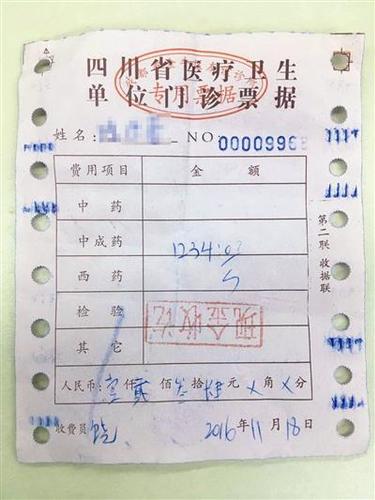 四川省医疗卫生
单位门诊票据
专用票据
姓名: NO 0000996
费用项目 金额
中药
中成药 1234.
西药
检验 现金收讫
其它
人民币: 仟 佰 拾 元 X 角 X 分
收费员 2016年11月18日
第二联 收据联